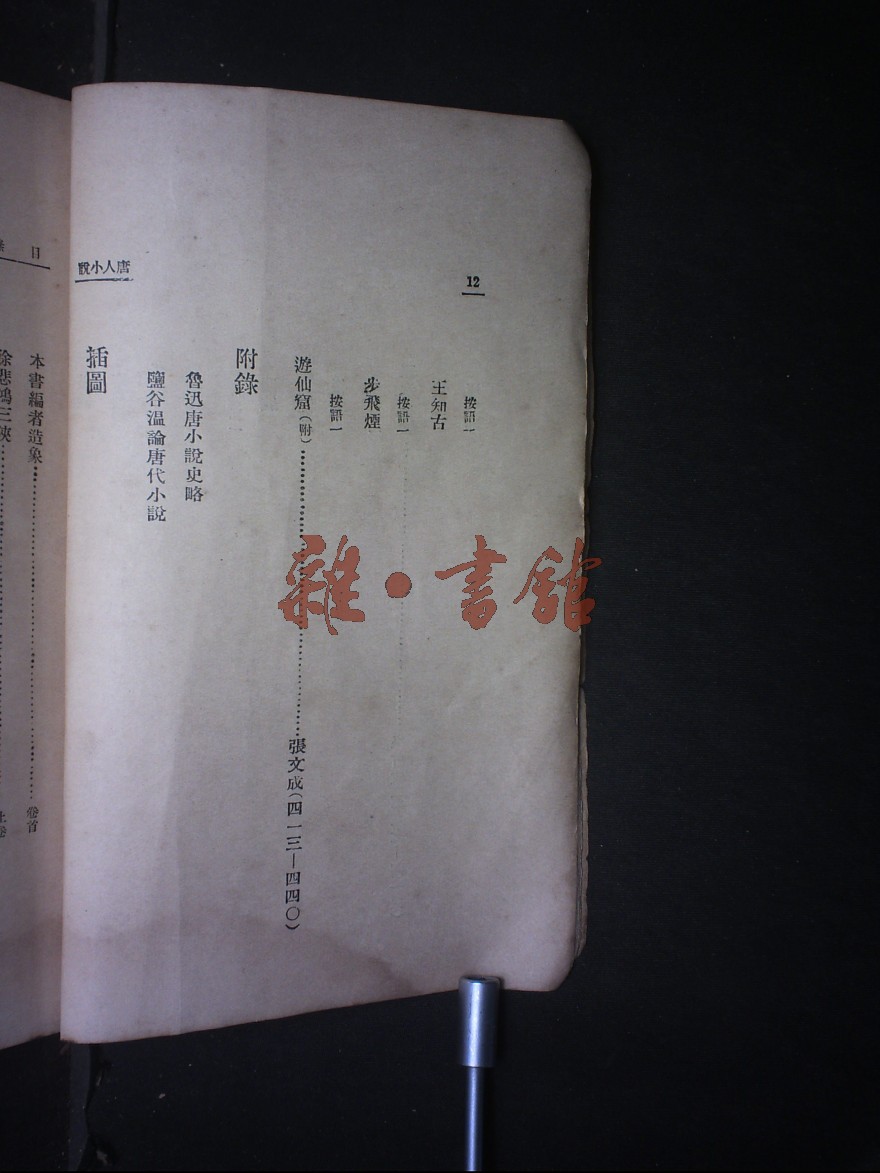 唐人小說
12
按語一
王知古
按語一
步飛煙
按語一
遊仙窟(附)……張文成(四一三—四四〇)
附錄
魯迅唐小說史略
鹽谷溫論唐代小說
插圖
目
本書編者造象……卷首
徐悲鴻三俠……上卷
雜·書館